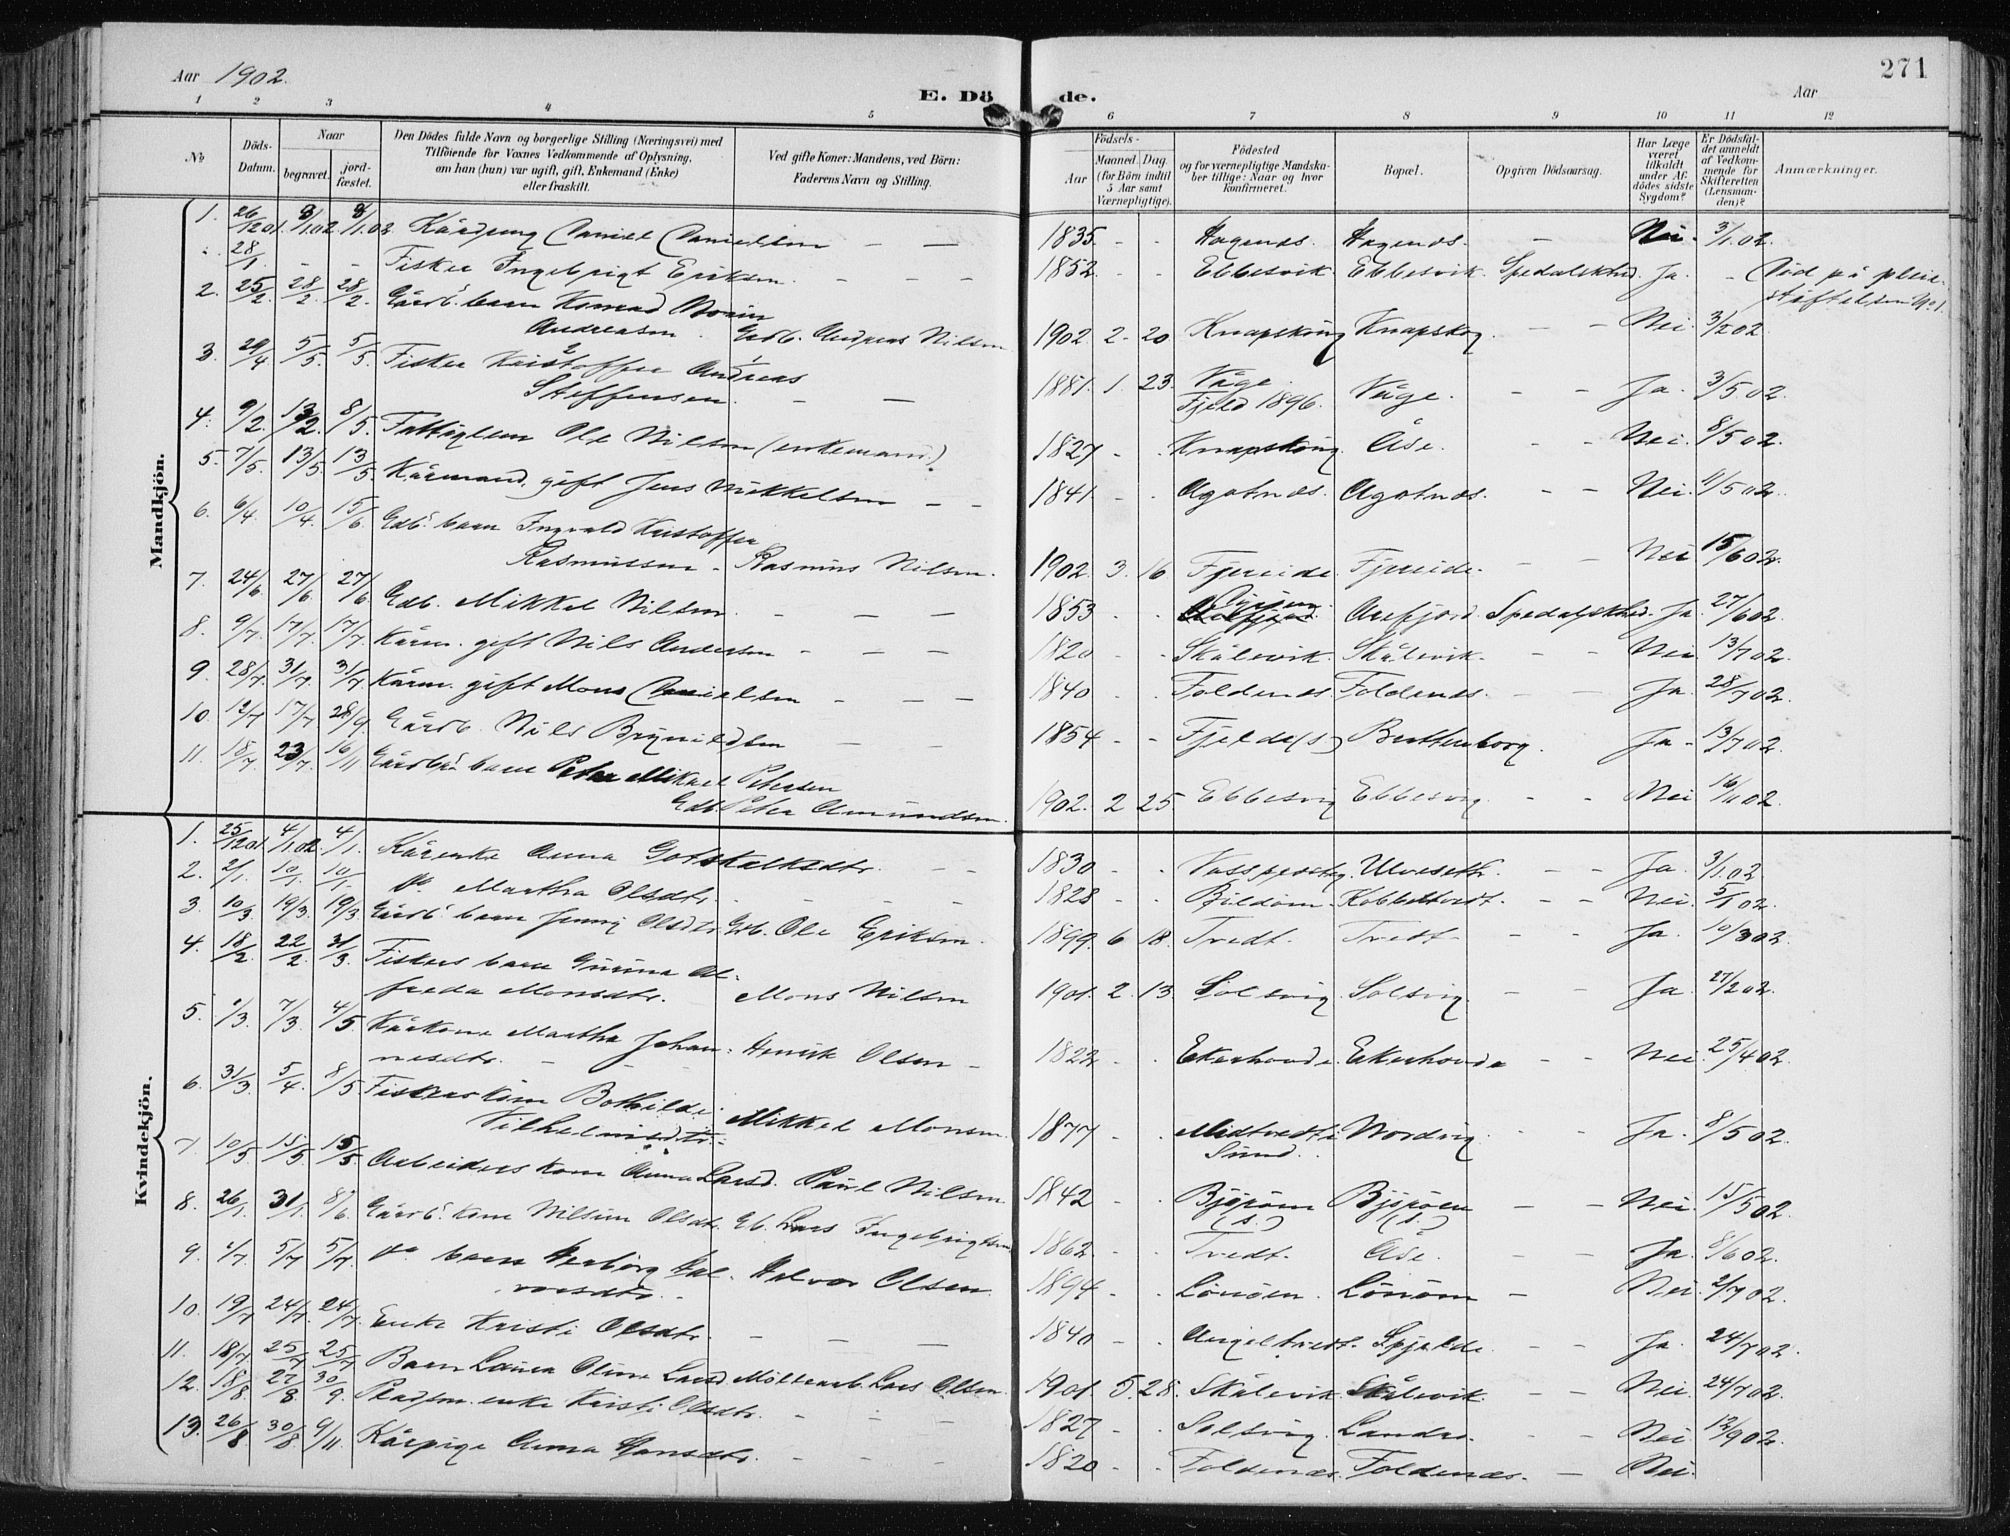 Aar 1902.
E. Döde.
Aar
271
1 2 3 4 5 6 7 8 9 10 11 12
No
Döds-Datum.
Naar
begravet.
jordfæstet.
Den Dödes fulde Navn og borgerlige Stilling (Næringsvei) med
Tilföiende for Voxnes Vedkommende af Oplysning,
om han (hun) var ugift, gift, Enkemand (Enke)
eller fraskilt.
Ved gifte Koner: Mandens, ved Börn:
Faderens Navn og Stilling.
Födsels-
Aar
Maaned. Dag.
(for Börn indtil
5 Aar samt
Værnepligtige).
Födested
og for værnepligtige Mandskaber tillige: Naar og hvor
konfirmeret.
Bopæl.
Opgiven Dödsaarsag.
Har Læge
været
tilkaldt
under Afdödes sidste
Sygdom?
Er Dödsfaldet anmeldt
af Vedkommende for
Skifteretten
(Lensmanden)?
Anmærkninger.
Mandkjön.
1. 26/12 01. 8/1.02. 8/1.02 Daniel Danielsen – – 1835 - - Hagenæs. Hagenæs. – Nei. 3/1.02.
28/1 - - Fisker Ingebrigt Eriksen. – – – 1852. - - Ebbesvik. Ebbesvik. Spedalskhed. Ja. - Död på pleiestiftelsen No 1.
2. 25/2. 28/2. 28/2. Gårdb. barn Konrad
Andreasen. Gdb. Andreas Nilsen 1902. 2. 20 Knapskog. – – Nei. 3/2 02
3. 29/4 5/5. 5/5. Fisker Kristoffer Andreas
Steffensen. – – 1881. 1. 23. Våge.
Fjeld 1896. Våge. – – Ja. 3/5 02.
4. 9/2. 13/2. 8/5. Ole Nilsen (enkemand.) 1827 - - Åse. – – Nei. 8/5 02.
5. 7/5. 13/5 13/5. Kårmand, gift Jens Mikkelsen – – 1841. - - Agotnæs. Agotnæs. – – Nei. 9/5 02.
6. 6/4. 10/4. 15/6 Gdb. barn Ingvald Kristoffer
Rasmussen – Rasmus Nilsen. 1902. 3. 16 Fjæreide. Fjæreide. – – Nei 15/6 02.
7. 24/6 27/6. 27/6. Gdb. Mikkel Nilsen. – – – 1853 - - Arefjord. Spedalskhed. Ja. 27/6 02.
8. 9/7. 17/7. 17/7. Kårm. gift Nils Andersen – – – 1820 - - Skålevik. Skålevik. – – Nei. 13/7 02.
9. 28/7. 31/7. 31/7 Kårm. gift Mons Danielsen – – – 1840 - - Foldenæs. Foldenæs. – – Ja. 28/7 02.
10. 12/7 17/7. 28/9. Gårdb. Nils Brynildsen – – 1854 - - Fjelde(s) Brattenborg. Ja - 13/7 02.
11. 18/7. 23/7. 16/11 Gårdb. barn Peder Mikael Petersen
Gdb. Peter Amundsen. 1902. 2 25 Ebbesvig Ebbesvig. – – Nei 16/11 02
Kvindekjön.
1. 25/12 01. 4/1.02. 4/1. Kårenke Anna Gotskalksdtr. – – 1830 - - Ulveseth. – – Ja. 3/1.02
2. 2/1. 10/1. 10/1. do Martha Olsdtr. – – – – 1828 - - Bildöen. – – Nei. 5/1 02.
3. 10/3. 19/3. 19/3. Gårdb. barn Jenny Olsdtr. Gdb. Ole Eriksen. 1899. 6 18. Tvedt. Tvedt – – Ja. 10/3 02.
4. 18/2. 22/2. 31/3. Fiskers barn Gurina Alfreda Monsdtr. Mons Nilsen 1901. 2. 13. Solsvig. Solsvig. – – Ja. 27/2 02.
5. 1/3. 7/3. 4/5. Kårkone Martha Johannesdtr. Henrik Olsen – 1822 - - Ekerhovde. Ekerhovde – – Nei. 25/4 02.
6. 31/3. 5/4. 8/5. Fiskerskone Bothilde
Vilhelmsdtr. Mikkel Monsen. 1877 - - Midtvedt i
Sund. Nordvig. – – Ja. 8/5 02.
7. 10/5. 15/5. 15/5. Arbeiders kone Anna Larsd. Paul Nilsen. 1842 - - Björöen
(s.) Björöen
(s.) – – Nei. 15/5 02.
8. 26/1. 31/1. 8/6. Gårdb. kone Nilsine Olsdtr. Gb. Lars Ingebrigtsen 1862. - - Tvedt. Åse. – – Ja. 8/6 02.
9. 1/7. 5/7. 5/7. do barn Herborg Halvorsdtr. Halvor Olsen. 1894 - - Lönöen. Lönöen – Nei. 2/7 02.
10. 19/7 24/7. 24/7. Enke Kristi Olsdtr. – – – 1840 - - Angeltvedt. Spjelde. – Ja. 24/7 02.
11. 18/7. 25/7 25/7. Barn Laura Oline Larsd. Lars Olsen. 1901. 5. 28. Skålevik Skålevik. – – Nei. 24/7 02.
12. 18/8 22/8. 30/9. enke Kristi Olsdtr. – – – 1827 - - Solsvig. Landro. – – Nei. 12/9 02.
13. 26/8. 30/8. 9/11. Kårpige Anna Hansdtr. – – – 1820 - - Foldenæs. Foldenæs. – Nei.